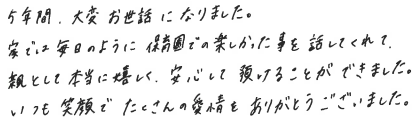 5年間、大変お世話になりました。
家では毎日のように保育園での楽しかった事を話してくれて、
親として本当に嬉しく、安心して預けることができました。
いつも笑顔でたくさんの愛情をありがとうございました。